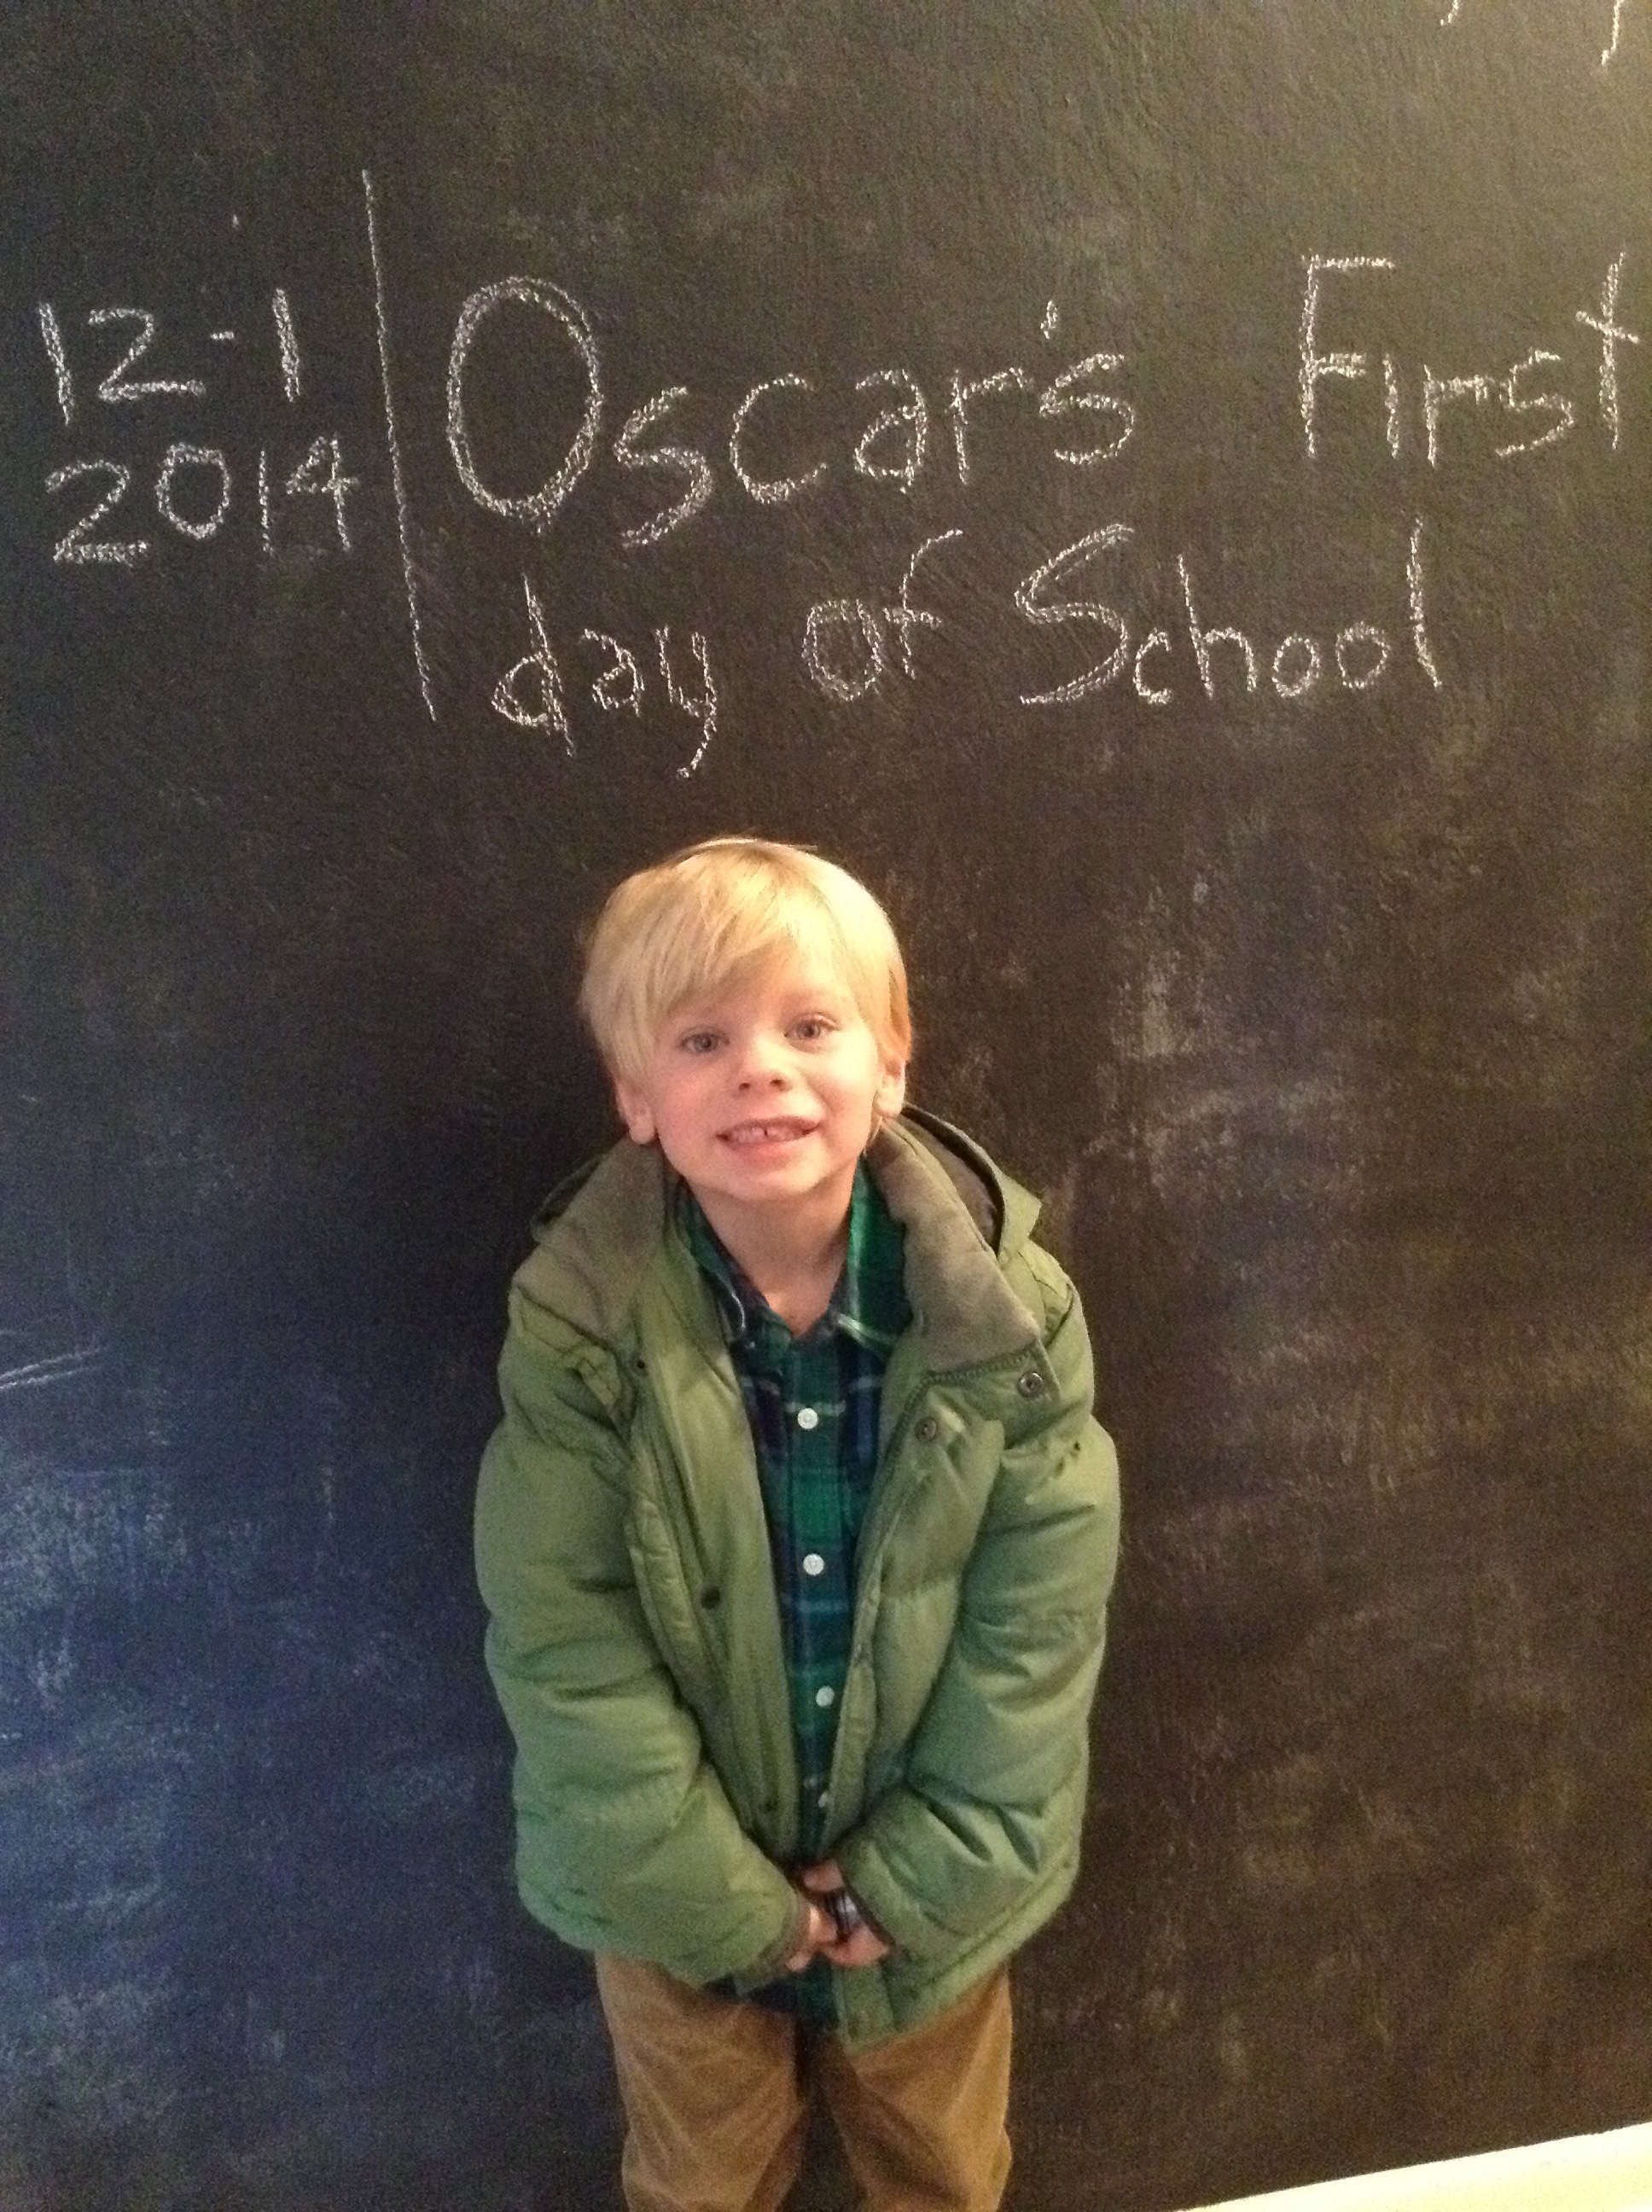 12-1
2014
Oscar's First
day of School